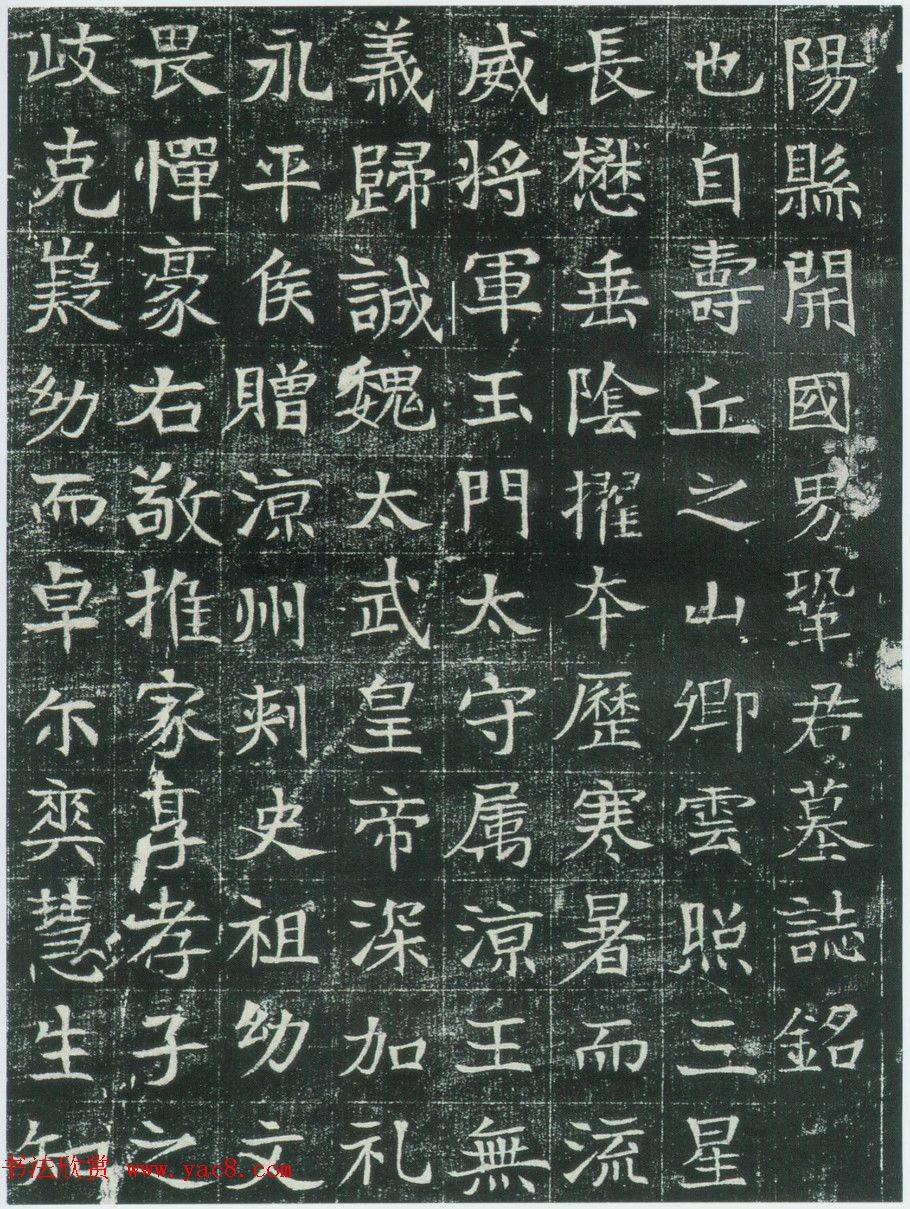 陽縣開國男鞏君墓誌銘
也自壽丘之山卿雲照三星
長懋垂陰擢夲歷寒暑而流
威将軍玉門太守属涼王無
義歸誠魏太武皇帝深加礼
永平侯贈涼州刾史祖幼文
畏憚豪右敬推家享孝子之
岐克嶷幼而卓尓奕慧生知
书法欣赏 www.yac8.com